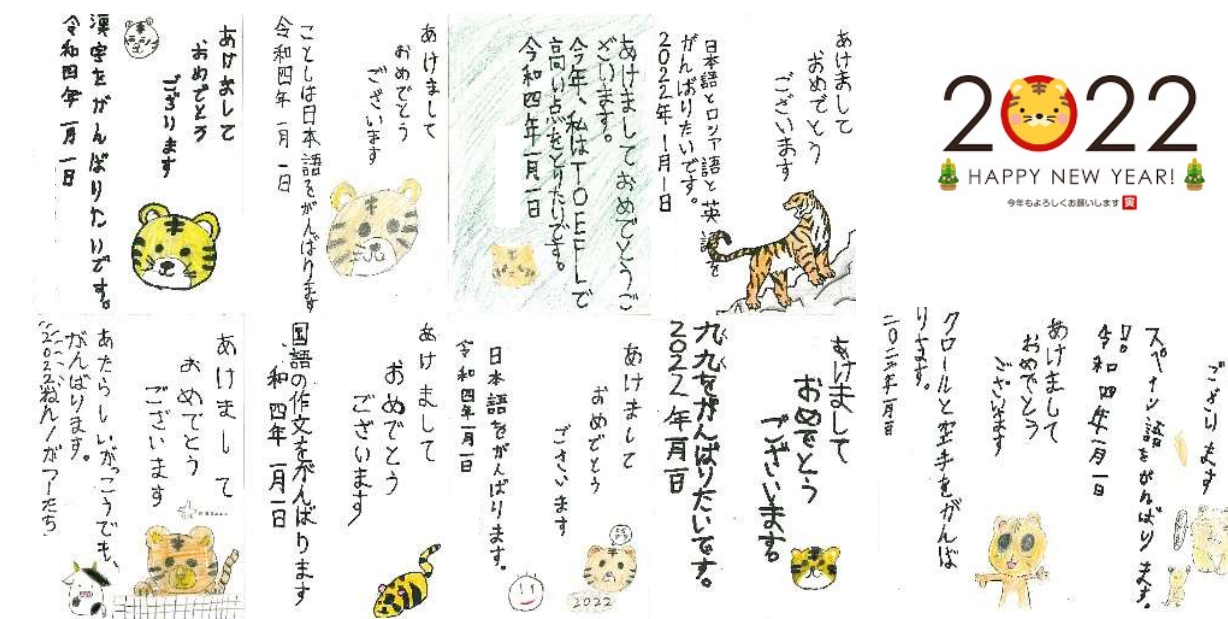 あけまして
おめでとう
ございます
漢字をがんばりたいです。
令和四年一月一日
あけまして
おめでとう
ございます
ことしは日本語をがんばります
令和四年一月一日
あけましておめでとうご
ざいます。
今年、私はTOEFLで
高い点をとりたいです。
今和四年一月一日
あけまして
おめでとう
ございます
日本語とロシア語と英語を
がんばりたいです。
2022年1月1日
2022
HAPPY NEW YEAR!
今年もよろしくお願いします 寅
あけまして
おめでとう
ございます
あたらしいがっこうでも、
がんばります。
あけまして
おめでとう
ございます
国語の作文をがんばります
和四年一月一日
あけまして
おめでとう
ございます
日本語をがんばります。
令和四年一月一日
2022
あけまして
おめでとう
ございます。
九九をがんばりたいです。
2022年一月一日
あけまして
おめでとう
ございます
クロールと空手をがんば
ります。
二〇二二年一月一日
ございます
スペイン語をがんばります。
令和四年一月一日